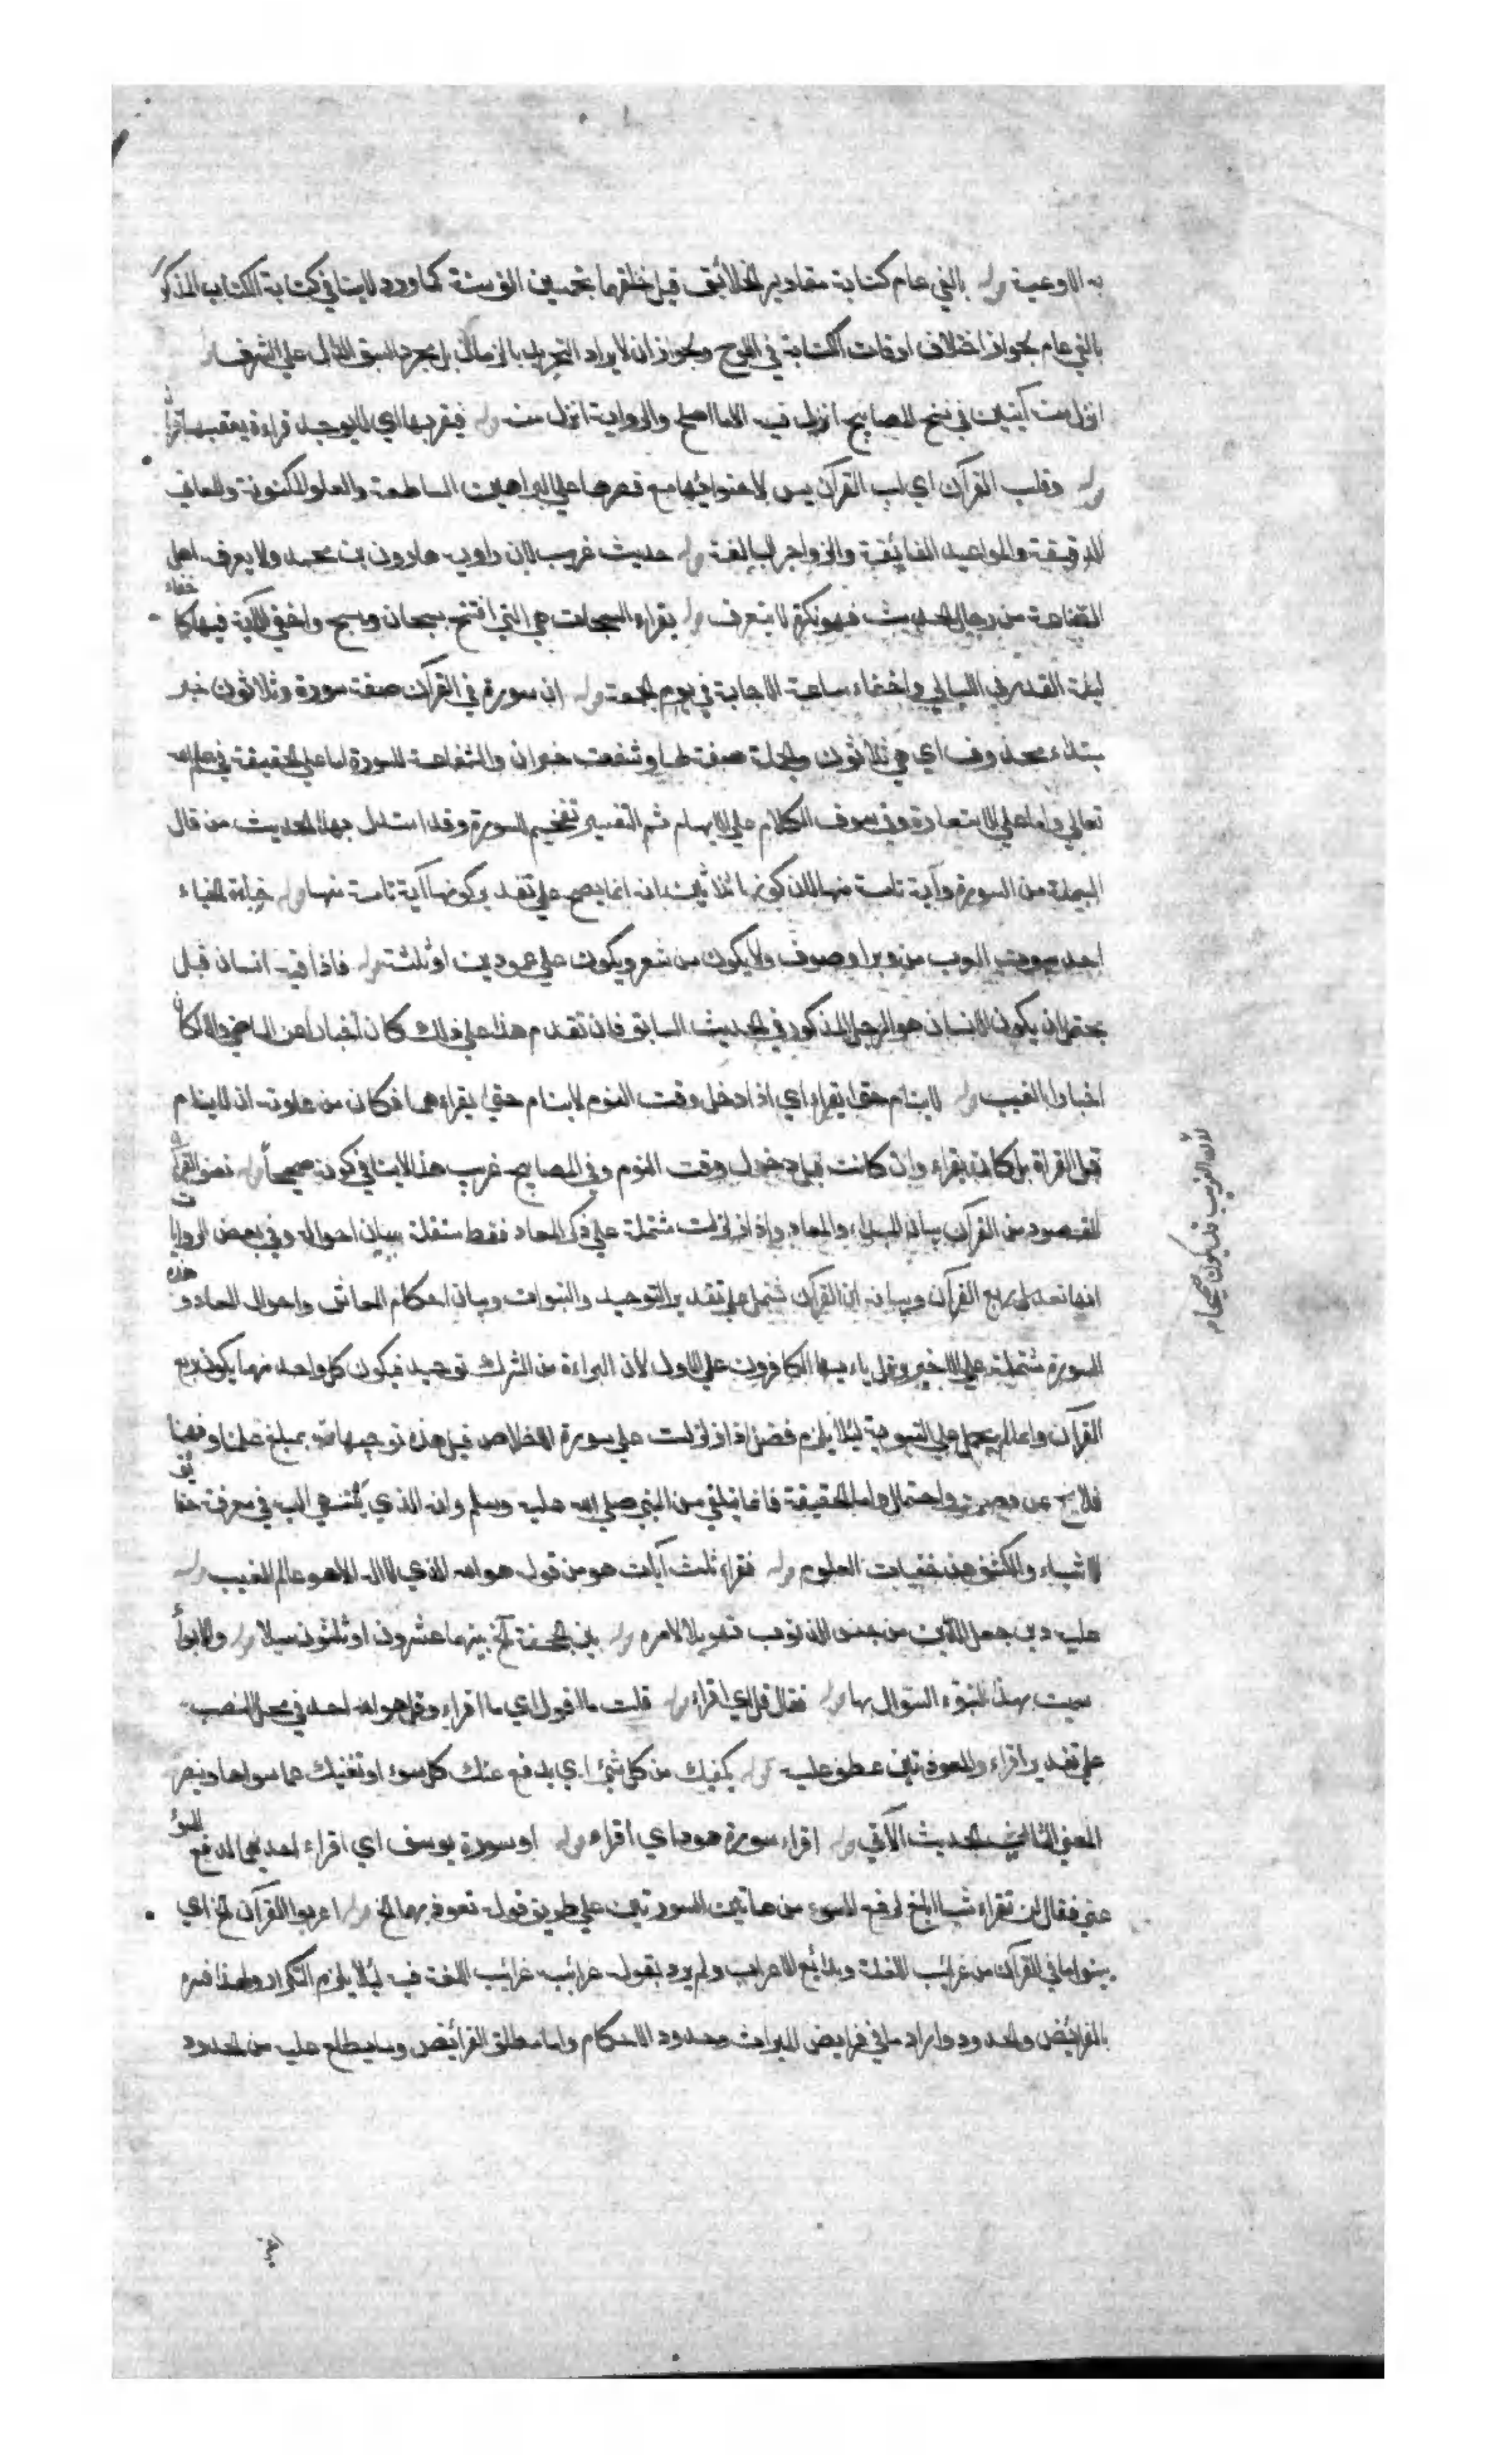 به الاوعية قوله بالفي عام كتابة مقادير الخلائق قبل خلقها بخمسين الف سنة كما ورد لاينافي كتابة الكتاب المذكور
بالفي عام لجواز اختلاف اوقات الكتابة في اللوح ولجواز ان لا يراد التحديد بالزمان بل مجرد السبق الدال على الشرف قوله
انزل منه آيتين في نسخ المصابيح انزل فيه الاما اصلح والرواية انزل منه قوله فيقربها اي لا يوجد قراءة يعقبها قربان
قوله وقلب القرآن اي لب القرآن يس لاحتوائها مع قصرها على البراهين الساطعة والعلوم المكنونة والمعاني
الدقيقة والمواعيد الفائقة والزواجر البالغة قوله حديث غريب لان راويه هارون بن محمد ولا يعرف اهل
الصناعة من رجال الحديث فهو نكرة لا يتعرف قوله يقراء المسبحات هي التي افتتح بسبحان وسبح واخفي الآية فيها كاخفاء
ليلة القدر في الليالي واخفاء ساعة الاجابة في يوم الجمعة قوله ان سورة في القرآن صفة سورة وثلاثون خبر
مبتداء محذوف اي هي ثلاثون والجملة صفة لها وشفعت خبران والشفاعة للسورة اما على الحقيقة في علم الله
تعالى واما على الاستعارة وفي سوق الكلام على الابهام ثم التفسير تفخيم للسورة وقد استدل بهذا الحديث من قال
البسملة من السورة وآية تامة منها لان كونها ثلاثين آية انما يصح على تقدير كونها آية تامة منها قوله خباءه الخباء
احد بيوت العرب من وبر او صوف ولا يكون من شعر ويكون على عمودين او ثلثة قوله فاذا فيه انسان قبل
يحتمل ان يكون الانسان هو الرجل المذكور في الحديث السابق فان تقدم هذا على ذلك كان اخبارا عن الماضي والا كان
اخبارا بالغيب قوله لاينام حتى يقراء اي اذا دخل وقت النوم لاينام حتى يقراءهما فكان من عادته ان لاينام
قبل القراة بل كان يقراء وان كانت قبل دخول وقت النوم وفي المصابيح غريب هذا لاينافي كونه صحيحاً قوله نصف القرآن
المقصود من القرآن بيان المبداء والمعاد واذا زلزلت مشتملة على ذكر المعاد فقط مستقلة ببيان احواله وفي بعض الروايات
انها تعدل ربع القرآن وبيانه ان القرآن تشتمل على تقدير التوحيد والنبوات وبيان احكام المعاش واحوال المعاد وهذه
السورة مشتملة على الاخير وقل ياءيها الكافرون على الاول لان البراءة من الشرك توحيد فيكون كل واحد منهما يكون ربع
القرآن وانما لم يحمل على التسوية لئلا يلزم فضل اذا زلزلت على سورة الاخلاص قيل هذه توجيهات بمبلغ علمنا وفهمنا
فلا يخ عن قصور واحتمال واما الحقيقة فانما يتلقى من النبي صلى الله عليه وسلم وانه الذي ينتهي اليه في معرفة حقائق
الاشياء والكشف عن خفيات العلوم قوله فقراء ثلث آيات هو من قوله هو الله الذي لا اله الا هو عالم الغيب قوله
عليه دين جعل الدين من جنس الذنوب تهويلا لامره قوله بين الجحفة آخ بينهما عشرون او ثلثون ميلا قوله والابواء
سميت بهذا لتبوء السيول بها قوله فقال قل اي اقراء قوله قلت ما اقول اي ما اقراء وقل هو الله احد في محل النصب
على تقدير اقراء والمعوذتين عطف عليه قوله يكفيك من كل شئ اي يدفع عنك كل سوء او تغنيك عما سواها وينصر
المعنى الثاني الحديث الآتي قوله اقراء سورة هود اي أقراء قوله او سورة يوسف اي اقراء احديهما لدفع السوء
عني فقال لن تقراء شيئا ابلغ لدفع السوء من هاتين السورتين على طريق قوله تعوذ بهما آلخ قوله اعربوا القرآن آلخ اي
بينوا ما في القرآن من غرائب اللغة وبدائع الاعراب ولم يرد بقوله غرائبه غرائب اللغة فيه لئلا يلزم التكرار ولهذا فسره
بالفرائض والحدود واراد ما في فرايض المواريث وحدود الاحكام واما مطلق الفرائض وما يطلع عليه من الحدود
لان الغريب قد يكون صحيحا م